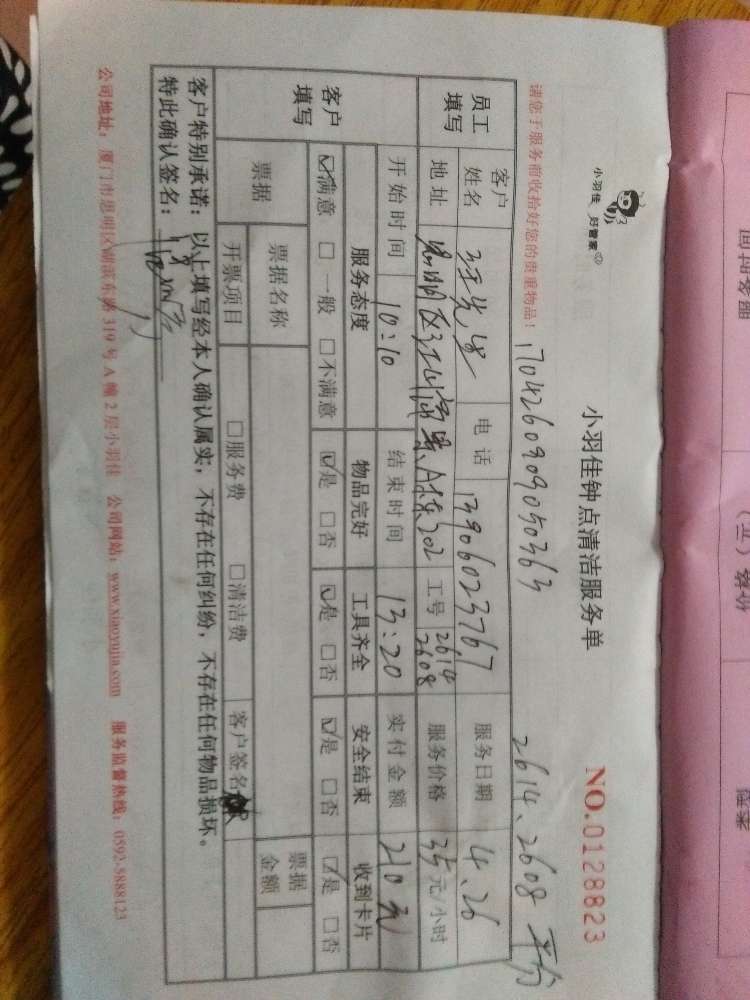 小羽佳 好管家
小羽佳钟点清洁服务单
NO.0128823
请您于服务前收拾好您的贵重物品!
1704260909050363
2614、2608 平分
员工填写
客户姓名 汪先生 电话 13906023767 服务日期 4.26
地址 思明区 A栋202 工号 2614 2608 服务价格 35元/小时
开始时间 10:10 结束时间 13:20 实付金额 210元
客户填写
服务态度 物品完好 工具齐全 安全结束 收到卡片
☑满意 □一般 □不满意 ☑是 □否 ☑是 □否 ☑是 □否 ☑是 □否
票据 票据名称 票据金额
开票项目 □服务费 □清洁费 客户签名
客户特别承诺:以上填写经本人确认属实,不存在任何纠纷,不存在任何物品损坏。
特此确认签名:
公司地址:厦门市思明区湖滨东路319号A幢2层小羽佳 公司网站:www.xiaoyujia.com 服务监督热线:0592-5888123